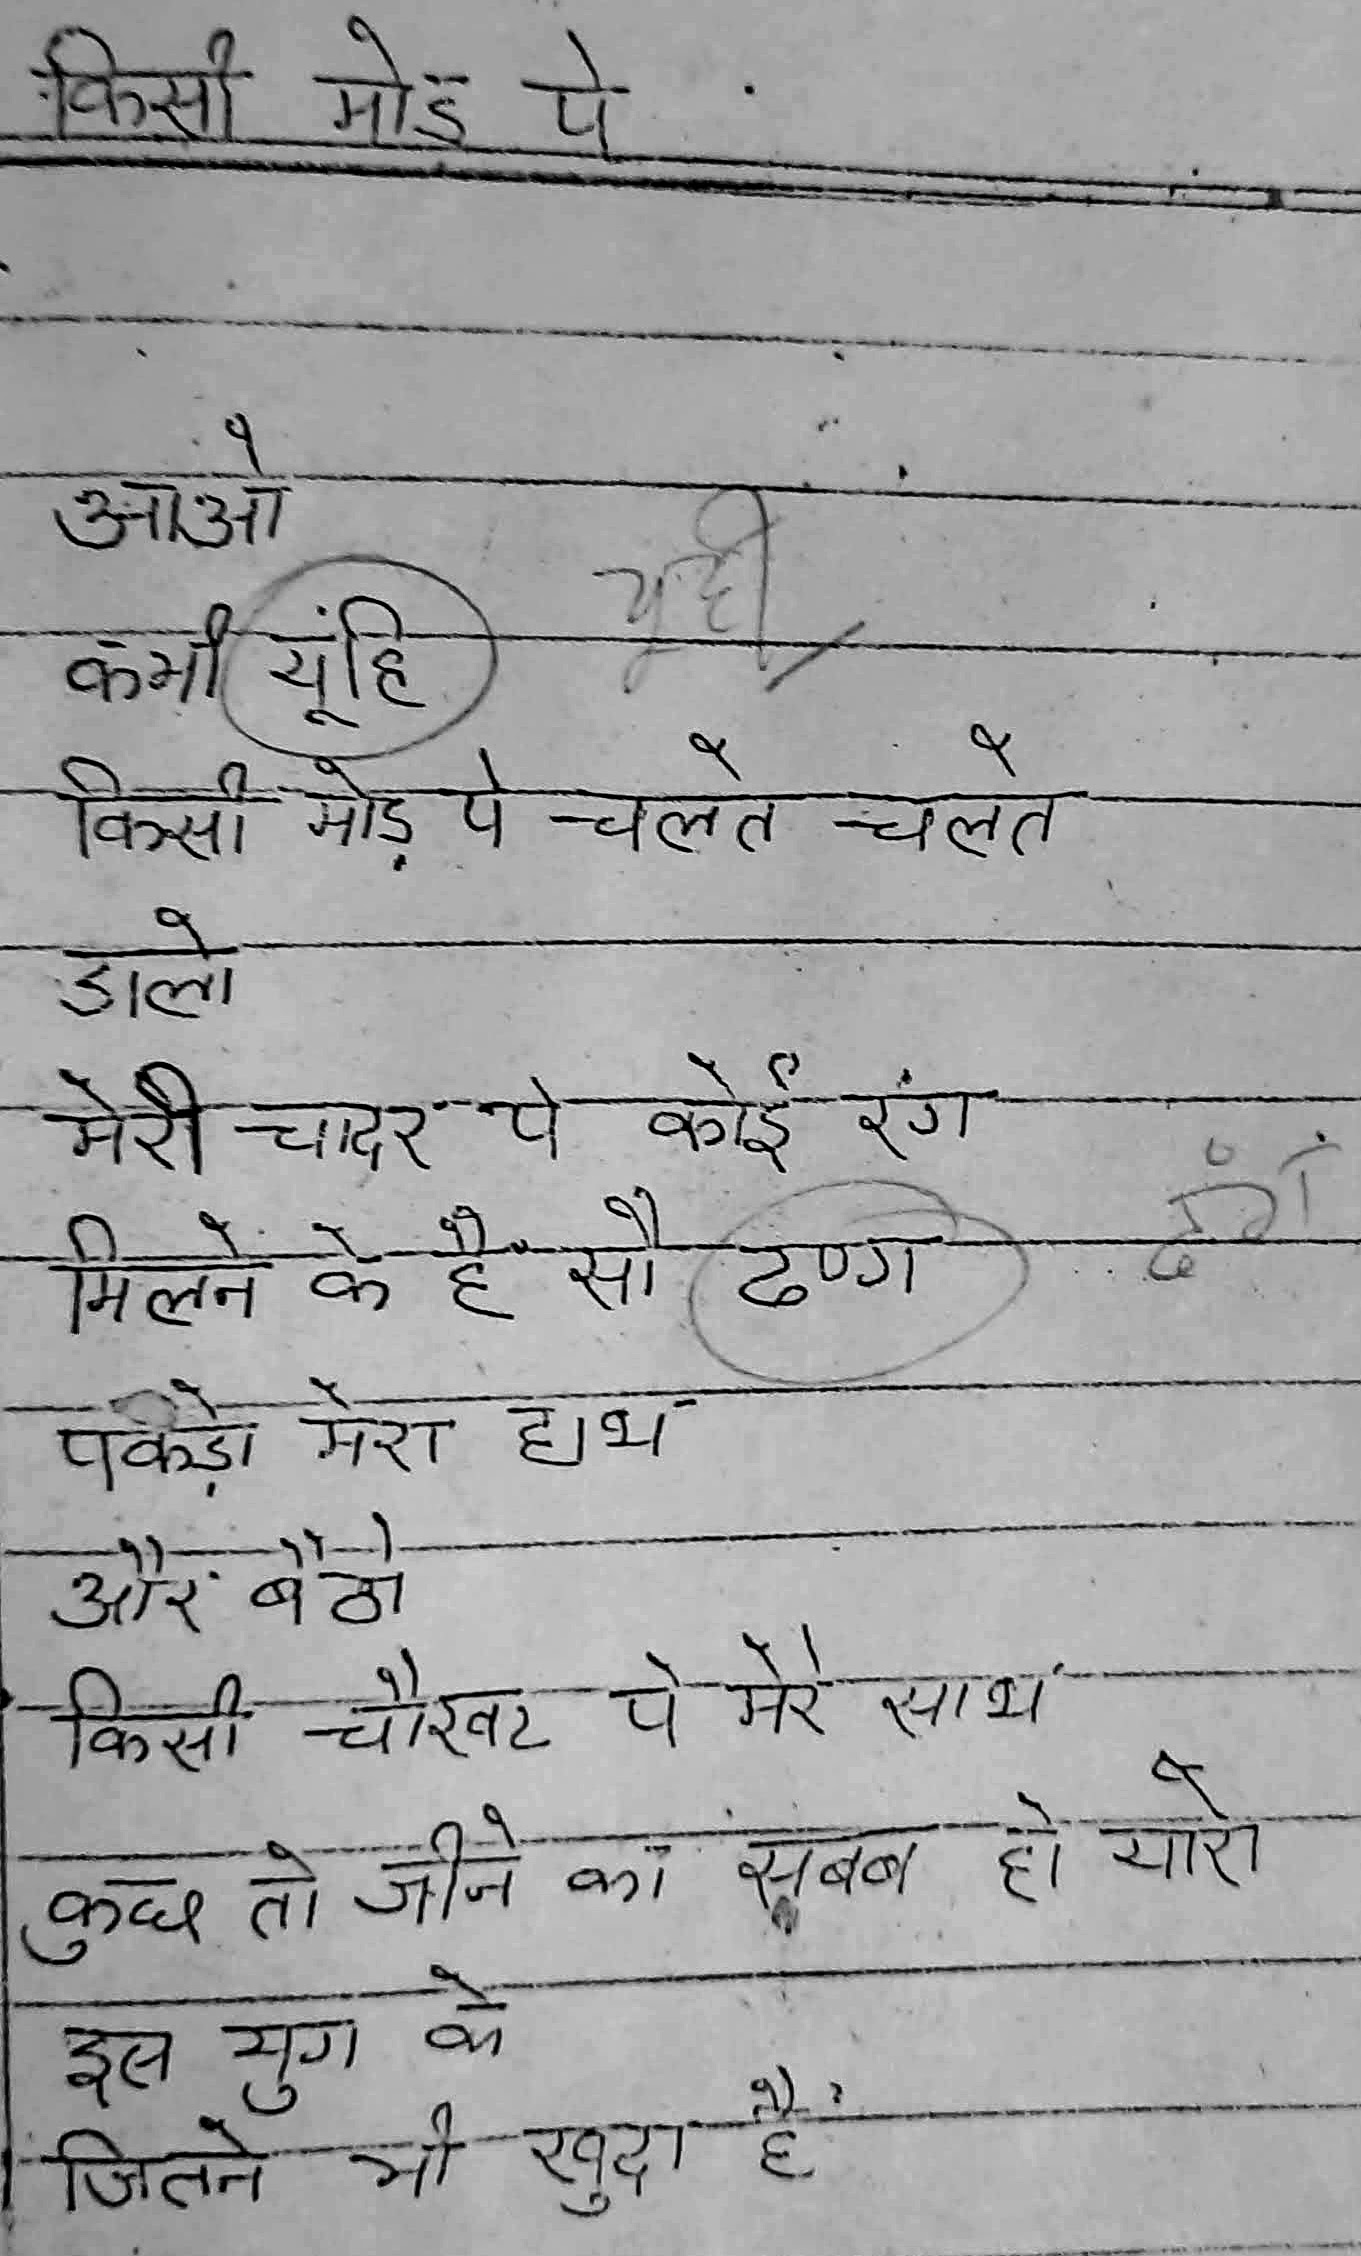 किसी मोड़ पे
आओ
कभी यूंहि यूंही
किसी मोड़ पे चलते चलते
डालो
मेरी चादर पे कोई रंग
मिलने के हैं सौ ढण्ग ढँग
पकड़ो मेरा हाथ
और बैठो
किसी चौखट पे मेरे साथ
कुछ तो जीने का सबब हो यारो
इस युग के
जितने भी खुदा हैं